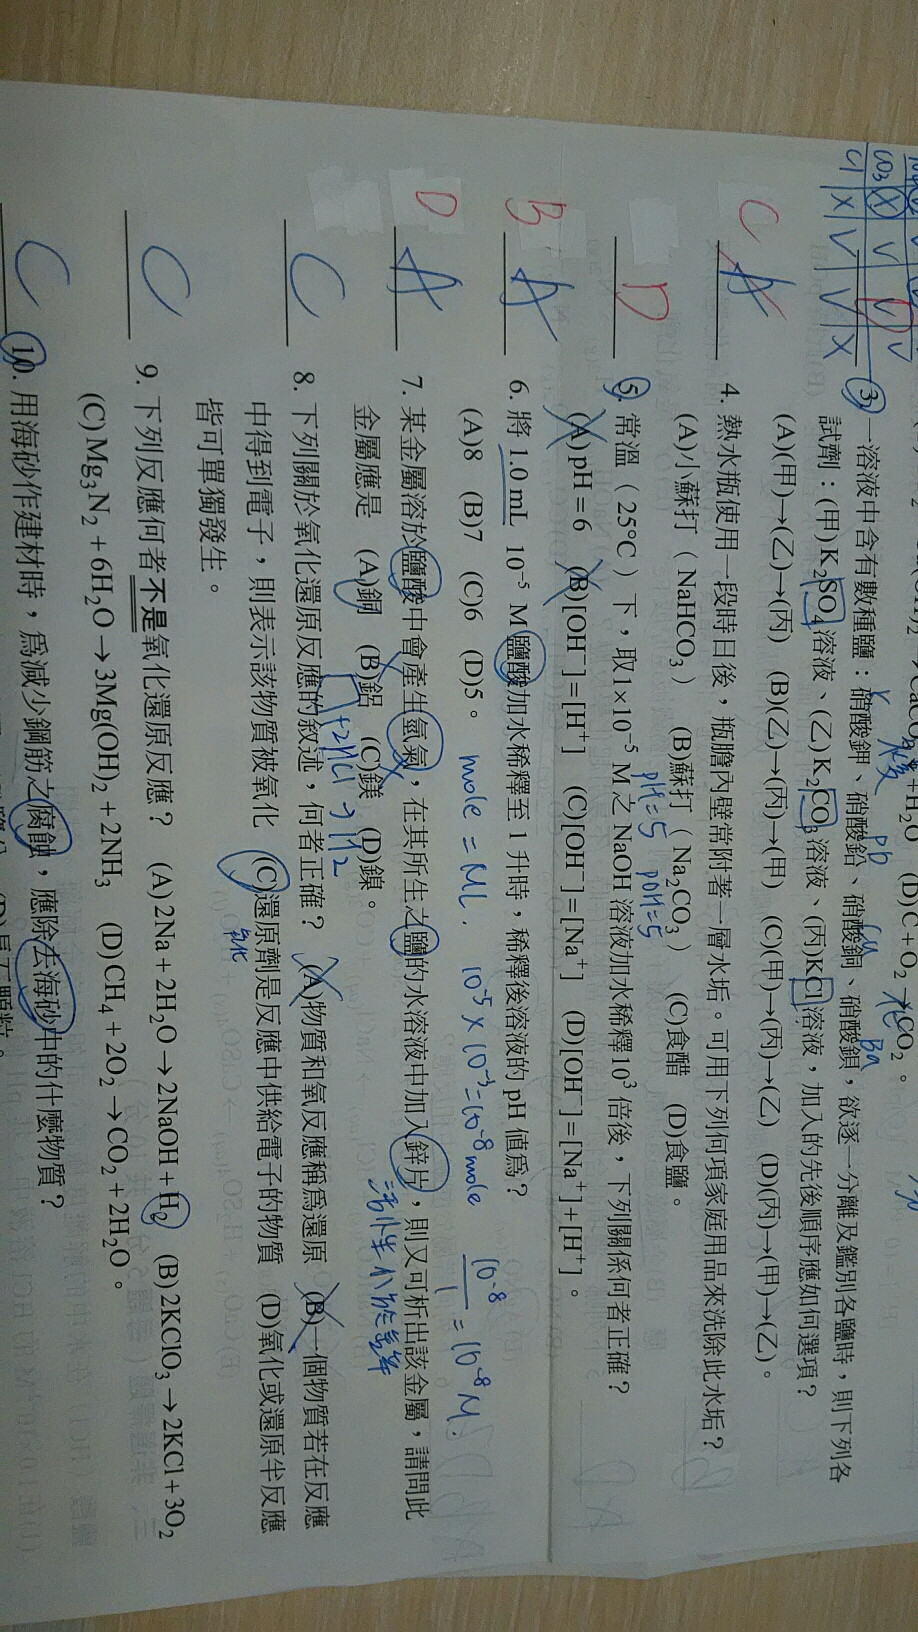 CaCO₃ + H₂O (D) C + O₂ → CO₂。
3. 一溶液中含有數種鹽：硝酸鉀、硝酸鉛、硝酸銅、硝酸鋇，欲逐一分離及鑑別各鹽時，則下列各
試劑：(甲)K₂SO₄溶液、(乙)K₂CO₃溶液、(丙)KCl溶液，加入的先後順序應如何選項？
(A)(甲)→(乙)→(丙) (B)(乙)→(丙)→(甲) (C)(甲)→(丙)→(乙) (D)(丙)→(甲)→(乙)。
C A 4. 熱水瓶使用一段時日後，瓶膽內壁常附著一層水垢。可用下列何項家庭用品來洗除此水垢？
(A)小蘇打（NaHCO₃） (B)蘇打（Na₂CO₃） (C)食醋 (D)食鹽。
pH=5 pOH=5
D 5. 常溫（25°C）下，取1×10⁻⁵ M之NaOH溶液加水稀釋10³倍後，下列關係何者正確？
(A) pH = 6 (B)[OH⁻]=[H⁺] (C)[OH⁻]=[Na⁺] (D)[OH⁻]=[Na⁺]+[H⁺]。
B A 6. 將 1.0 mL 10⁻⁵ M 鹽酸加水稀釋至 1 升時，稀釋後溶液的 pH 值為？
(A)8 (B)7 (C)6 (D)5。 mole = ML. 10⁻⁵ × 10⁻³ = 10⁻⁸ mole 10⁻⁸/1 = 10⁻⁸ M.
D A 7. 某金屬溶於鹽酸中會產生氫氣，在其所生之鹽的水溶液中加入鋅片，則又可析出該金屬，請問此
金屬應是 (A)銅 (B)鋁 (C)鎂 (D)鎳。
+2HCl → H2
C 8. 下列關於氧化還原反應的敘述，何者正確？ (A)物質和氧反應稱為還原 (B)一個物質若在反應
中得到電子，則表示該物質被氧化 (C)還原劑是反應中供給電子的物質 (D)氧化或還原半反應
氧化
皆可單獨發生。
C 9. 下列反應何者不是氧化還原反應？ (A) 2Na + 2H₂O → 2NaOH + H₂ (B) 2KClO₃ → 2KCl + 3O₂
(C) Mg₃N₂ + 6H₂O → 3Mg(OH)₂ + 2NH₃ (D) CH₄ + 2O₂ → CO₂ + 2H₂O。
C 10. 用海砂作建材時，為減少鋼筋之腐蝕，應除去海砂中的什麼物質？